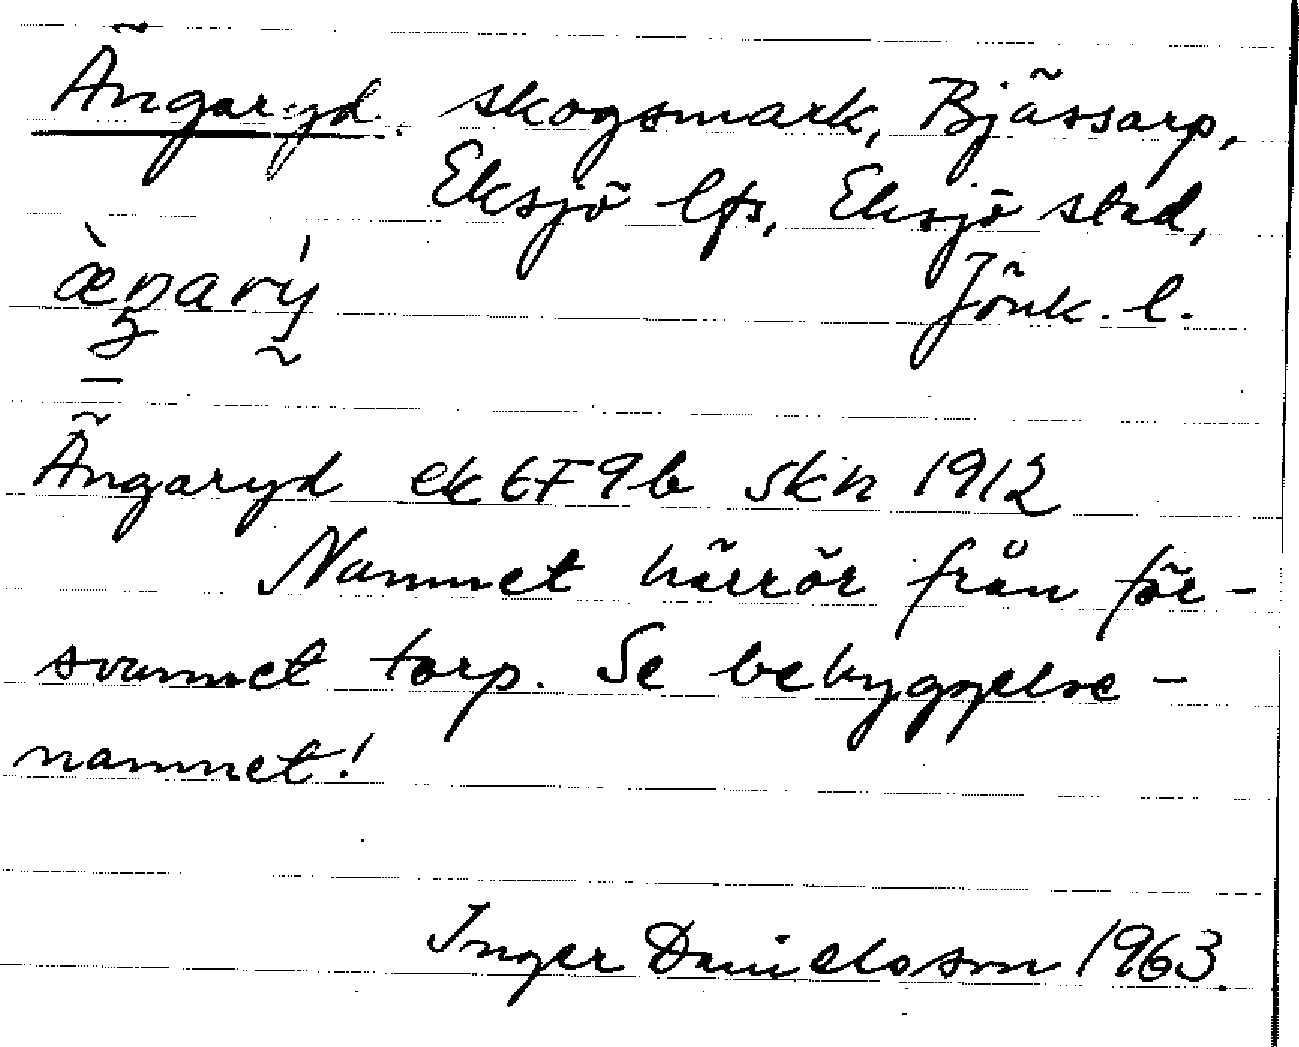 Ängaryd. skogsmark, Bjässarp,
Eksjö lfs, Eksjö stad,
Jönk. l.
Ängaryd ek 6F9b skn 1912
Namnet härrör från för-
svunnet torp. Se bebyggelse-
namnet!
Inger Danielsson 1963.